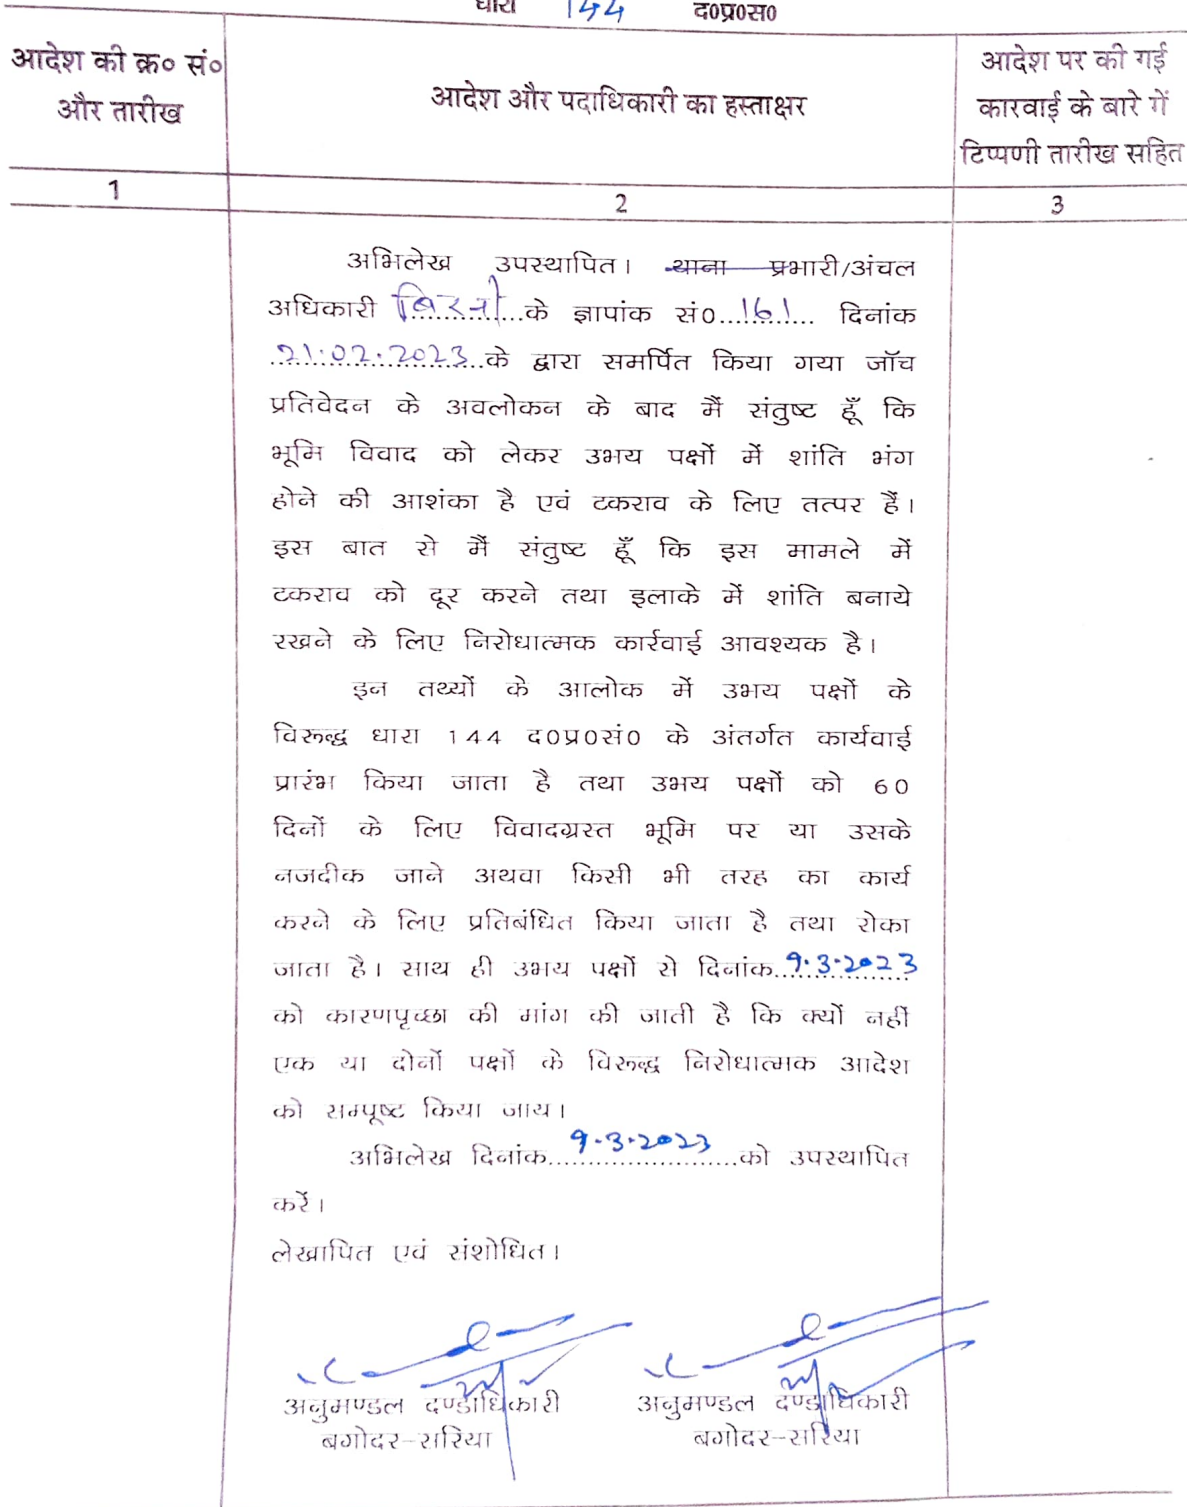 धारा 144 द०प्र०स०
आदेश की क्र० सं० और तारीख
आदेश और पदाधिकारी का हस्ताक्षर
आदेश पर की गई कारवाई के बारे में टिप्पणी तारीख सहित
1 2 3
अभिलेख उपस्थापित। थाना प्रभारी/अंचल
अधिकारी बिरनी के ज्ञापांक सं0...161... दिनांक
21.02.2023 के द्वारा समर्पित किया गया जॉच
प्रतिवेदन के अवलोकन के बाद मैं संतुष्ट हूँ कि
भूमि विवाद को लेकर उभय पक्षों में शांति भंग
होने की आशंका है एवं टकराव के लिए तत्पर हैं।
इस बात से मैं संतुष्ट हूँ कि इस मामले में
टकराव को दूर करने तथा इलाके में शांति बनाये
रखने के लिए निरोधात्मक कार्रवाई आवश्यक है।
इन तथ्यों के आलोक में उभय पक्षों के
विरूद्ध धारा 144 द0प्र0सं0 के अंतर्गत कार्यवाई
प्रारंभ किया जाता है तथा उभय पक्षों को 60
दिनों के लिए विवादग्रस्त भूमि पर या उसके
नजदीक जाने अथवा किसी भी तरह का कार्य
करने के लिए प्रतिबंधित किया जाता है तथा रोका
जाता है। साथ ही उभय पक्षों से दिनांक 9.3.2023
को कारणपृच्छा की मांग की जाती है कि क्यों नहीं
एक या दोनों पक्षों के विरूद्ध निरोधात्मक आदेश
को सम्पूष्ट किया जाय।
अभिलेख दिनांक 9.3.2023 को उपस्थापित
करें।
लेखापित एवं संशोधित।
अनुमण्डल दण्डाधिकारी अनुमण्डल दण्डाधिकारी
बगोदर-सरिया बगोदर-सरिया